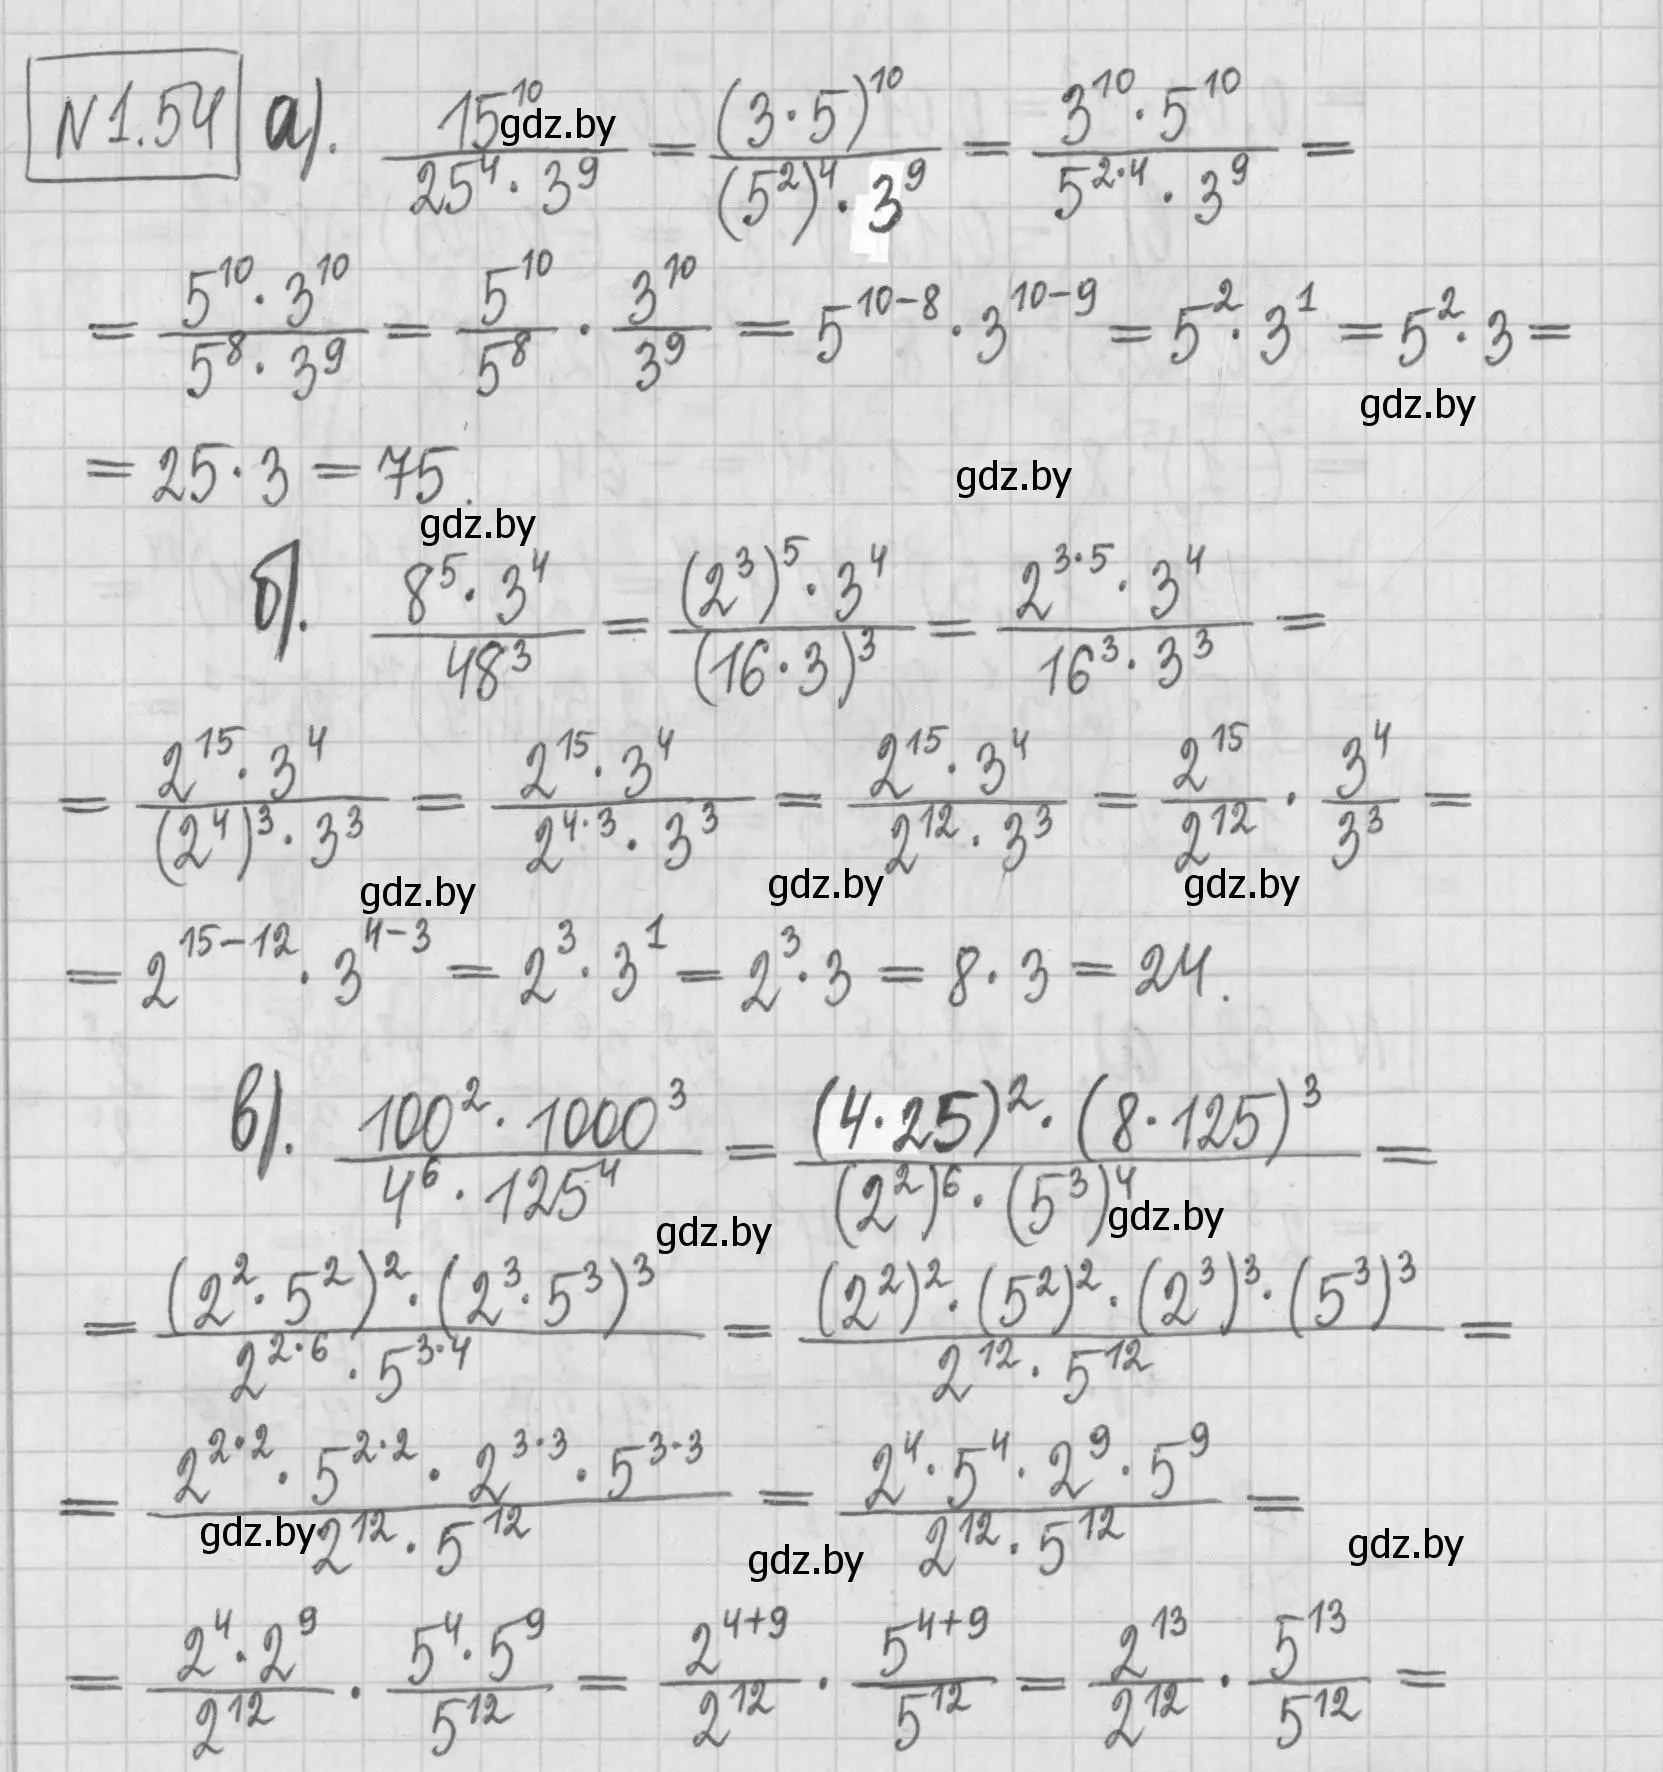 N 1.54 а). 15^10 / (25^4 · 3^9) = (3·5)^10 / ((5^2)^4 · 3^9) = (3^10 · 5^10) / (5^(2·4) · 3^9) =
gdz.by
= (5^10 · 3^10) / (5^8 · 3^9) = 5^10 / 5^8 · 3^10 / 3^9 = 5^(10-8) · 3^(10-9) = 5^2 · 3^1 = 5^2 · 3 =
gdz.by
= 25 · 3 = 75.
gdz.by
gdz.by
б). (8^5 · 3^4) / 48^3 = ((2^3)^5 · 3^4) / (16·3)^3 = (2^(3·5) · 3^4) / (16^3 · 3^3) =
= (2^15 · 3^4) / ((2^4)^3 · 3^3) = (2^15 · 3^4) / (2^(4·3) · 3^3) = (2^15 · 3^4) / (2^12 · 3^3) = 2^15 / 2^12 · 3^4 / 3^3 =
gdz.by gdz.by gdz.by
= 2^(15-12) · 3^(4-3) = 2^3 · 3^1 = 2^3 · 3 = 8 · 3 = 24.
в). (100^2 · 1000^3) / (4^6 · 125^4) = ((4·25)^2 · (8·125)^3) / ((2^2)^6 · (5^3)^4) =
gdz.by gdz.by
= ((2^2 · 5^2)^2 · (2^3 · 5^3)^3) / (2^(2·6) · 5^(3·4)) = ((2^2)^2 · (5^2)^2 · (2^3)^3 · (5^3)^3) / (2^12 · 5^12) =
= (2^(2·2) · 5^(2·2) · 2^(3·3) · 5^(3·3)) / (2^12 · 5^12) = (2^4 · 5^4 · 2^9 · 5^9) / (2^12 · 5^12) =
gdz.by gdz.by gdz.by
= (2^4 · 2^9) / 2^12 · (5^4 · 5^9) / 5^12 = 2^(4+9) / 2^12 · 5^(4+9) / 5^12 = 2^13 / 2^12 · 5^13 / 5^12 =